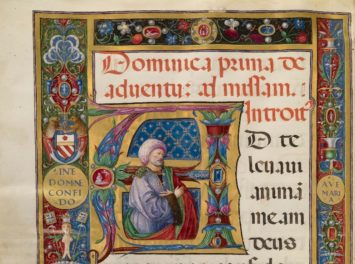 Dominica prima de
aduentu: ad missam.
Introit
A
D te
leuaui
animā
meam
deus
INTE
DOMNE
CONFI
DO
AVE
MARI
A